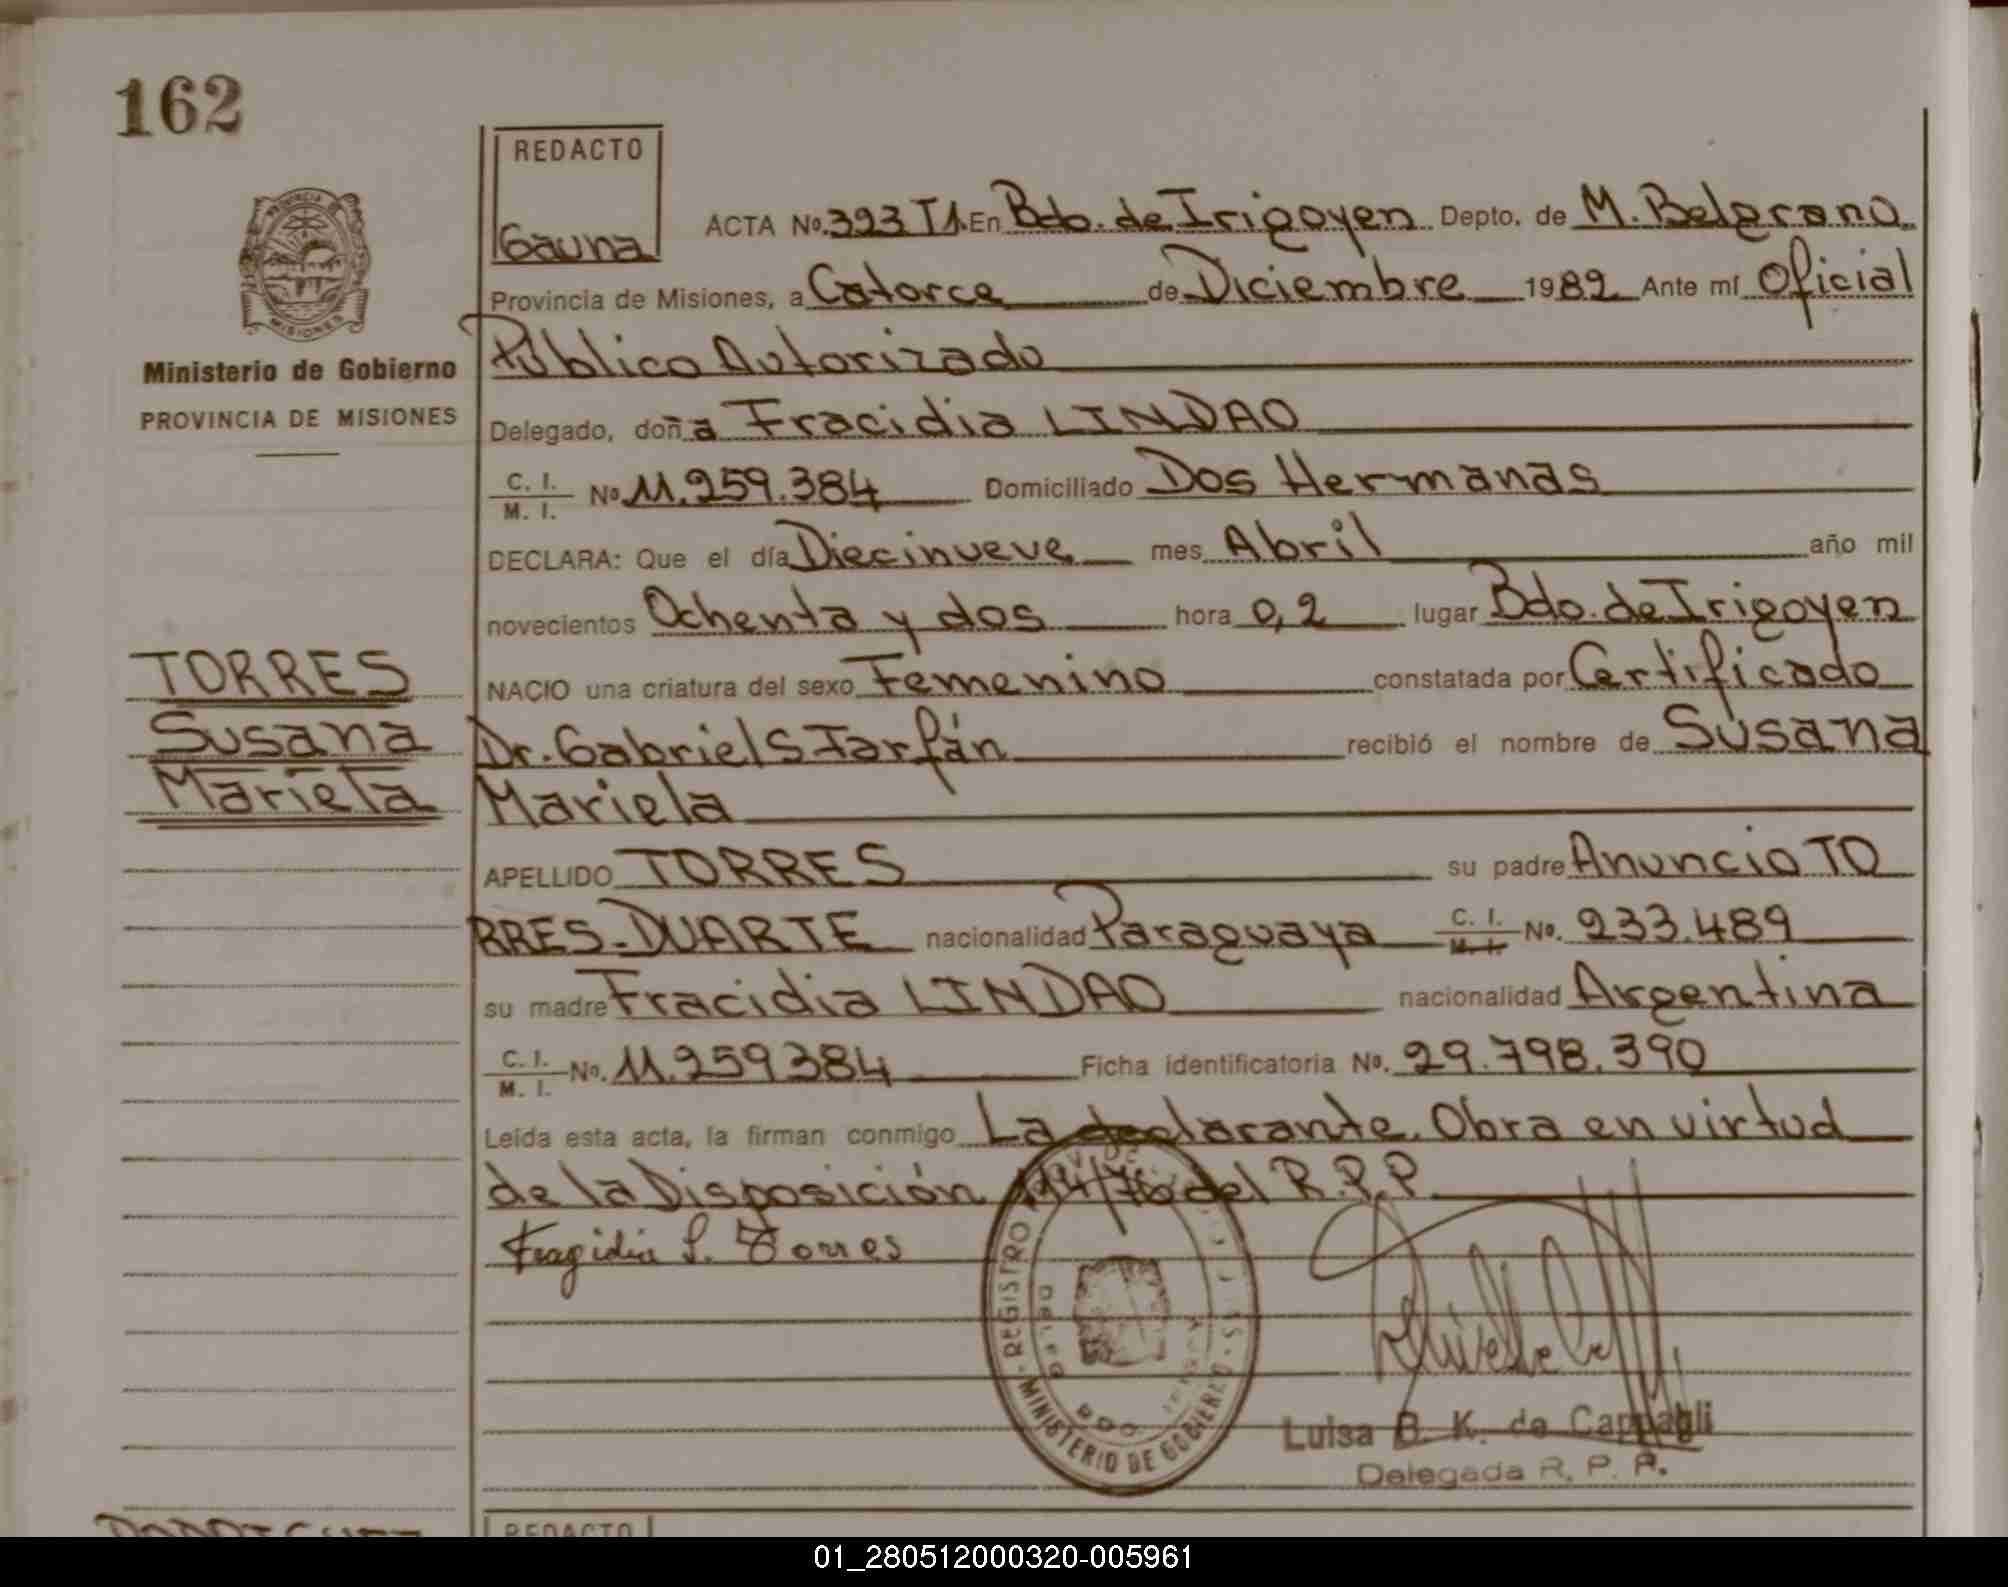 162
REDACTO
Gauna
ACTA No. 393 T1. En Bdo. de Irigoyen Depto. de M. Belgrano
PROVINCIA DE
MISIONES
Provincia de Misiones, a Catorce de Diciembre 1982 Ante mí Oficial
Ministerio de Gobierno
PROVINCIA DE MISIONES
Público Autorizado
Delegado, doña Fracidia LINDAO
C. I.
M. I. No 11.259.384 Domiciliado Dos Hermanas
DECLARA: Que el día Diecinueve mes Abril año mil
novecientos Ochenta y dos hora 0,2 lugar Bdo. de Irigoyen
NACIO una criatura del sexo Femenino constatada por Certificado
TORRES
Susana
Mariela
Dr. Gabriel S Farfán recibió el nombre de Susana
Mariela
APELLIDO TORRES su padre Anuncio TO
RRES-DUARTE nacionalidad Paraguaya C. I. M. I. No. 233.489
su madre Fracidia LINDAO nacionalidad Argentina
C. I.
M. I. No. 11.259384 Ficha identificatoria No. 29.798.390
Leída esta acta, la firman conmigo La declarante. Obra en virtud
de la Disposición 194/76 del R.P.P.
Fragidia L. Torres
REGISTRO
MINISTERIO DE GOBIERNO
BDO.
Luisa B. K. de Cappagli
Delegada R. P. P.
RODRIGUEZ
REDACTO
01_280512000320-005961